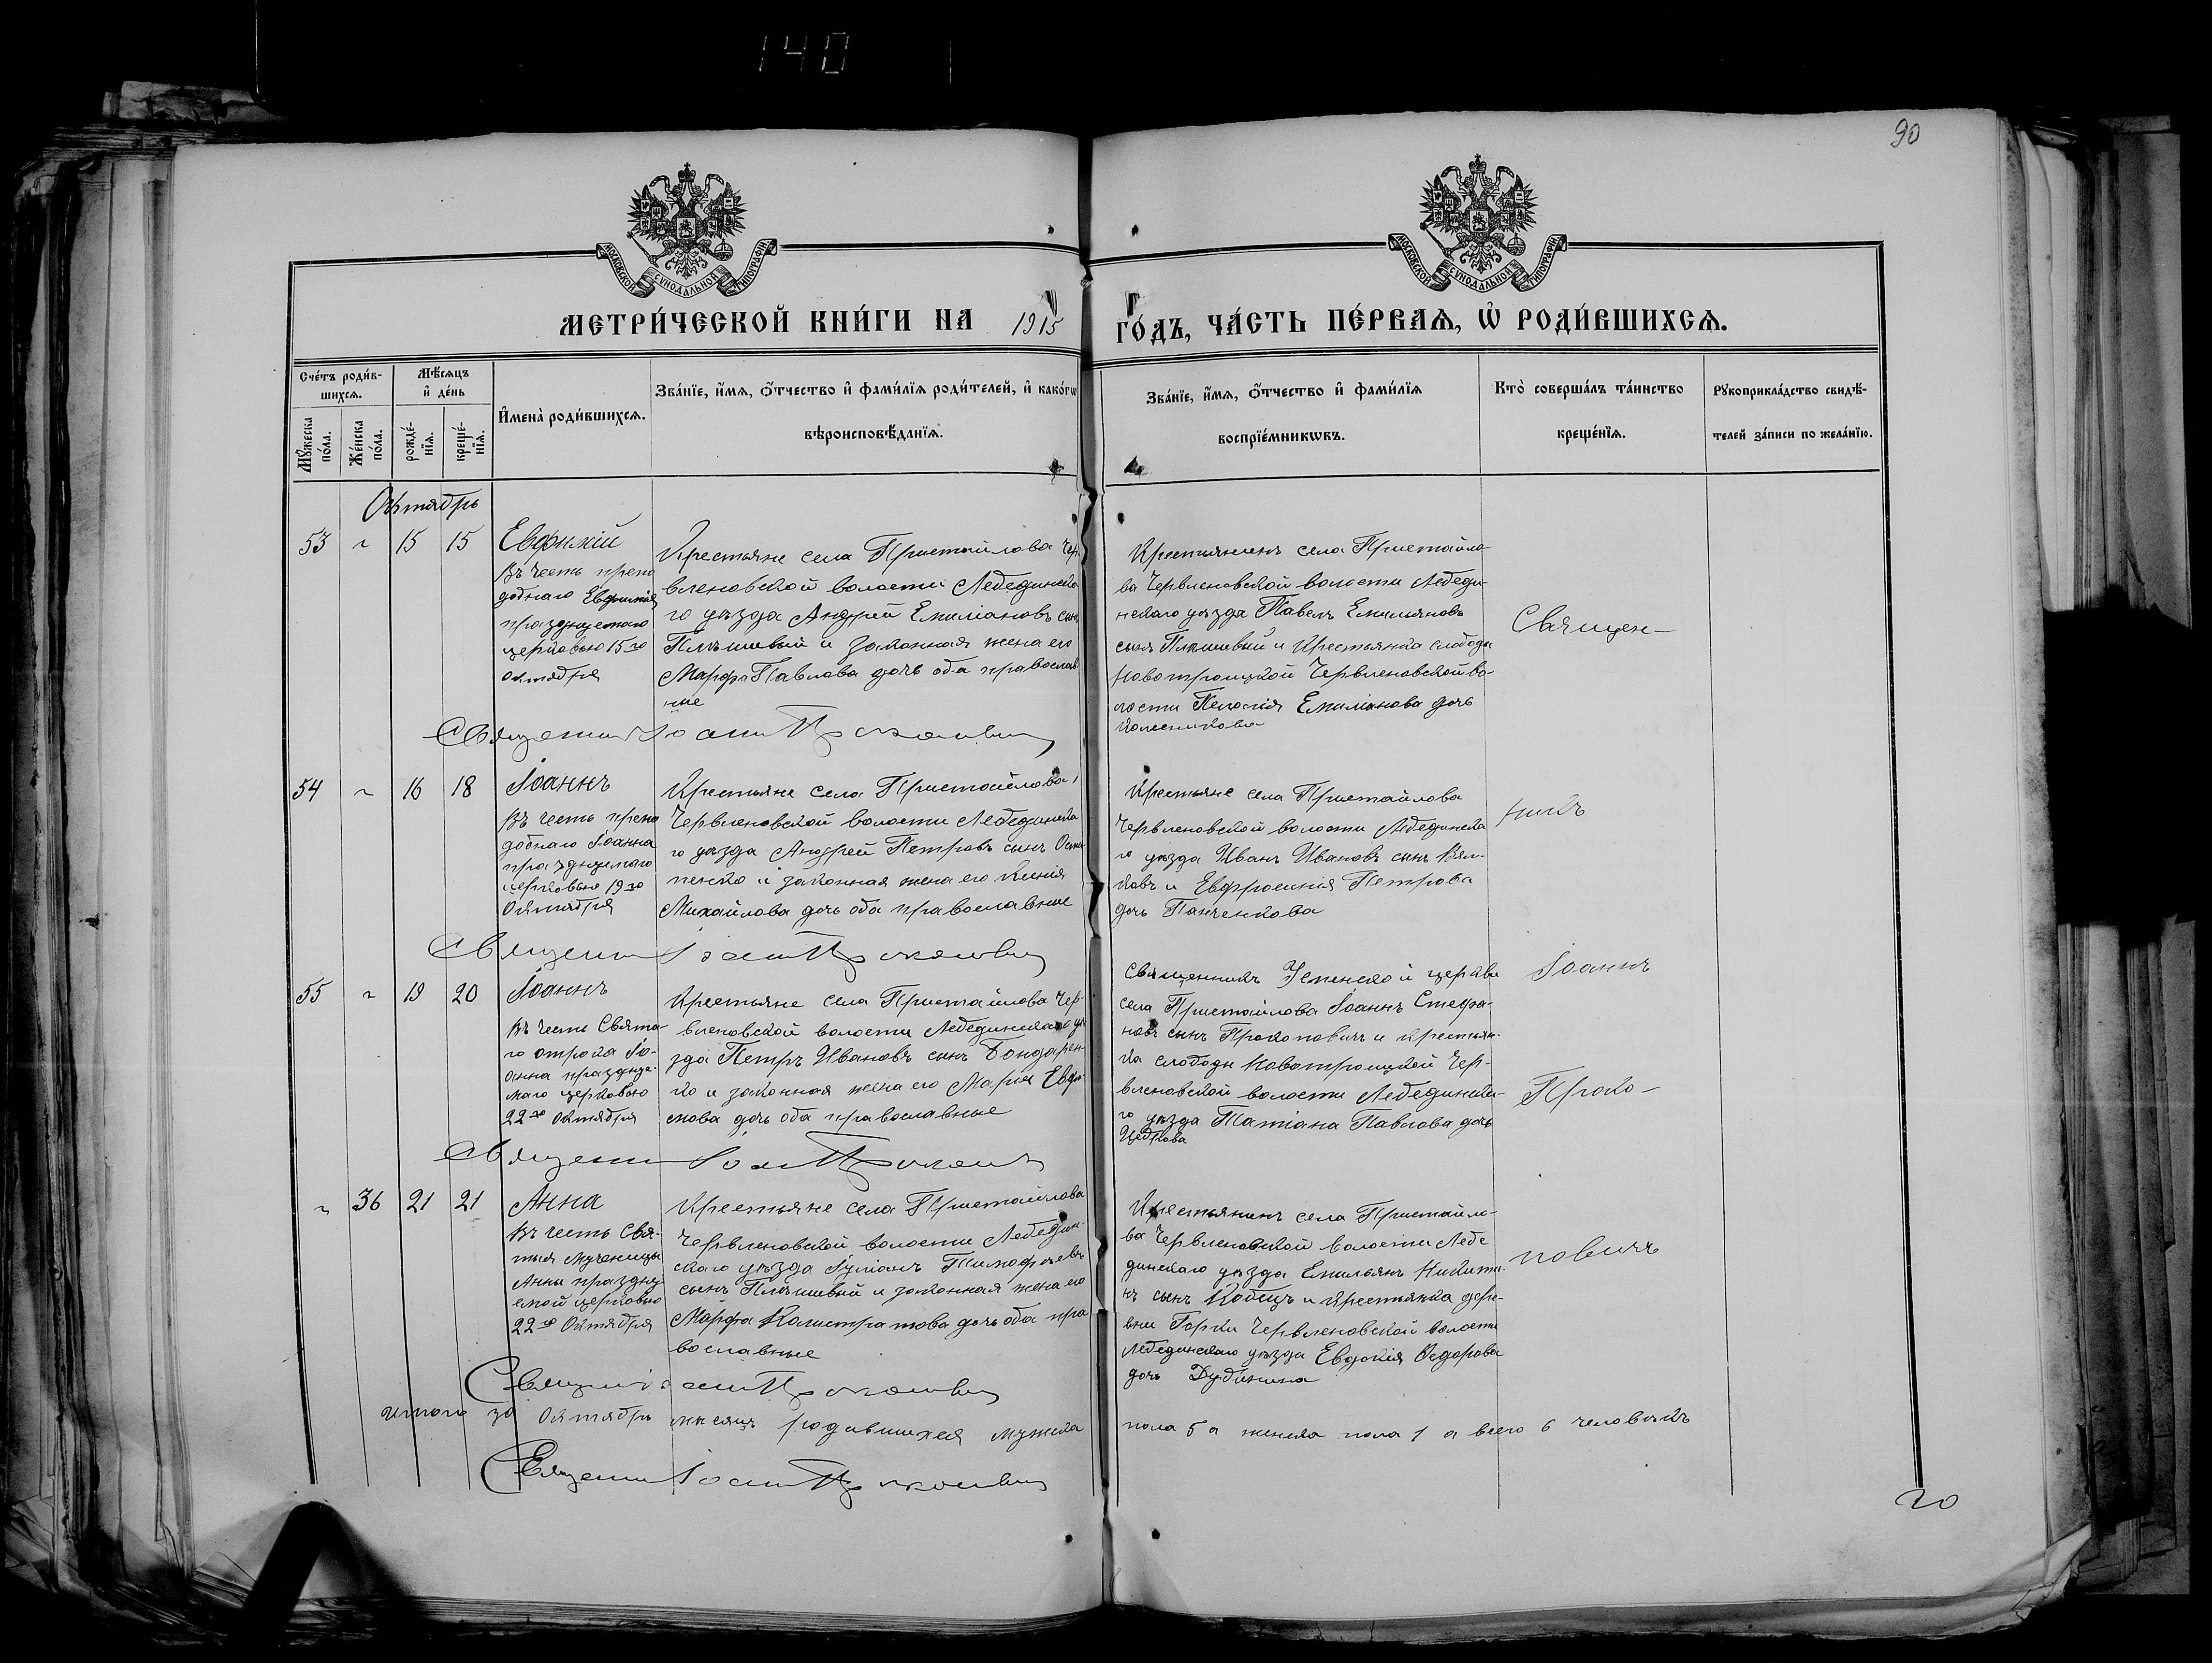 140
90
МОСКОВСКОЙ СУНОДАЛЬНОЙ ТИПОГРАФІИ
МОСКОВСКОЙ СУНОДАЛЬНОЙ ТИПОГРАФІИ
МЕТРИ́ЧЕСКОЙ КНИ́ГИ НА 1915 ГО́ДЪ, ЧА́СТЬ ПЕ́РВАѦ, Ѡ҆ РОДИ́ВШИХСѦ.
Сче́тъ роди́в-
шихсѧ.
Мѹ́жеска по́ла.
Же́нска по́ла.
Мѣ́сѧцъ
и҆ де́нь
рожде́-
нїѧ.
креще́-
нїѧ.
И҆мена̀ роди́вшихсѧ.
Зва́нїе, и҆́мѧ, ѻ҆́тчество и҆ фами́лїѧ роди́телей, и҆ како́гѡ
вѣроисповѣ́данїѧ.
Зва́нїе, и҆́мѧ, ѻ҆́тчество и҆ фами́лїѧ
воспрїе́мникѡвъ.
Кто̀ соверша́лъ та́инство
креще́нїѧ.
Рꙋкоприкла́дство свидѣ́-
телей за́писи по жела́нїю.
Октябрь
53 " 15 15
Евфимій
Въ честь препо
добнаго Евфимія
празднуемаго
церковью 15го
Октября
Крестьяне села Пристайлова Чер
вленовской волости Лебединска
го уѣзда Андрей Емиліановъ сын
Плѣшивый и законная жена его
Марфа Павлова дочь оба православ
ные
Крестьянинъ села Пристайло-
ва Червленовской волости Лебеди-
нскаго уѣзда Павелъ Емильяновъ
сынъ Плѣшивый и Крестьянка слободы
Новотроицкой Червленовской во-
лости Пелагія Емиліанова дочь
Священ-
Священник Іоанн Прокопович
54 " 16 18
Іоаннъ
Въ честь препо
добнаго Іоанна
празднуемаго
церковью 19го
Октября
Крестьяне села Пристайлова
Червленовской волости Лебединска
го уѣзда Андрей Петровъ сынъ
и законная жена его Ксенія
Михайлова дочь оба православные
Крестьяне села Пристайлова
Червленовской волости Лебединска
го уѣзда Иванъ Ивановъ сынъ
и Евфросинія Петрова
дочь Панченкова
никъ
Священник Іоанн Прокопович
55 " 19 20
Іоаннъ
Въ честь Свята-
го отрока Іо-
анна праздную-
маго церковью
22го Октября
Крестьяне села Пристайлова Чер-
вленовской волости Лебединскаго уѣ
зда Петръ Ивановъ сынъ Бондарен-
ко и законная жена его Марія Евфи
мова дочь оба православные
Священникъ Успенской церкви
села Пристайлова Іоаннъ Стефа-
новъ сынъ Прокоповичъ и крестьян-
ка слободы Новотроицкой Чер-
вленовской волости Лебединска-
го уѣзда Татіана Павлова дочь
Іоаннъ
Проко-
Священник Іоанн Прокопович
" 36 21 21
Анна
Въ честь Свя-
тыя Мученицы
Анны праздну-
емой церковью
22го Октября
Крестьяне села Пристайлова
Червленовской волости Лебедин-
скаго уѣзда Іуліанъ Тимофѣевъ
сынъ Плѣшивый и законная жена его
Марфа Калистратова дочь оба пра
вославные
Крестьянинъ села Пристайло-
ва Червленовской волости Лебе
динскаго уѣзда Емильянъ Никити-
нъ сынъ Кобецъ и крестьянка дере-
вни Горки Червленовской волости
Лебединскаго уѣзда Евдокія Ѳедорова
дочь Дудикина
повичъ
Священник Іоанн Прокопович
Итого за Октябрь мѣсяцъ родившихся мужска пола 5 а женска пола 1 а всего 6 человѣкъ
Священник Іоанн Прокопович